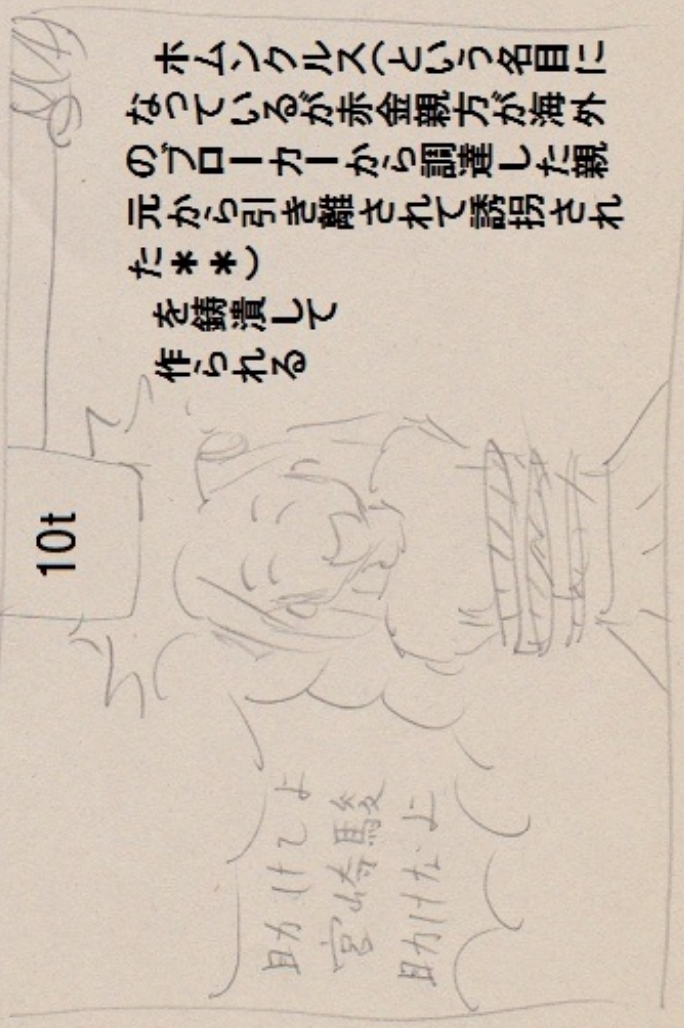 ホムンクルス(という名目に
なっているが赤金親方が海外
のブローカーから調達した親
元から引き離されて誘拐され
た**)
を鋳潰して
作られる
10t
助けてよ
宮崎駿
助けなよ